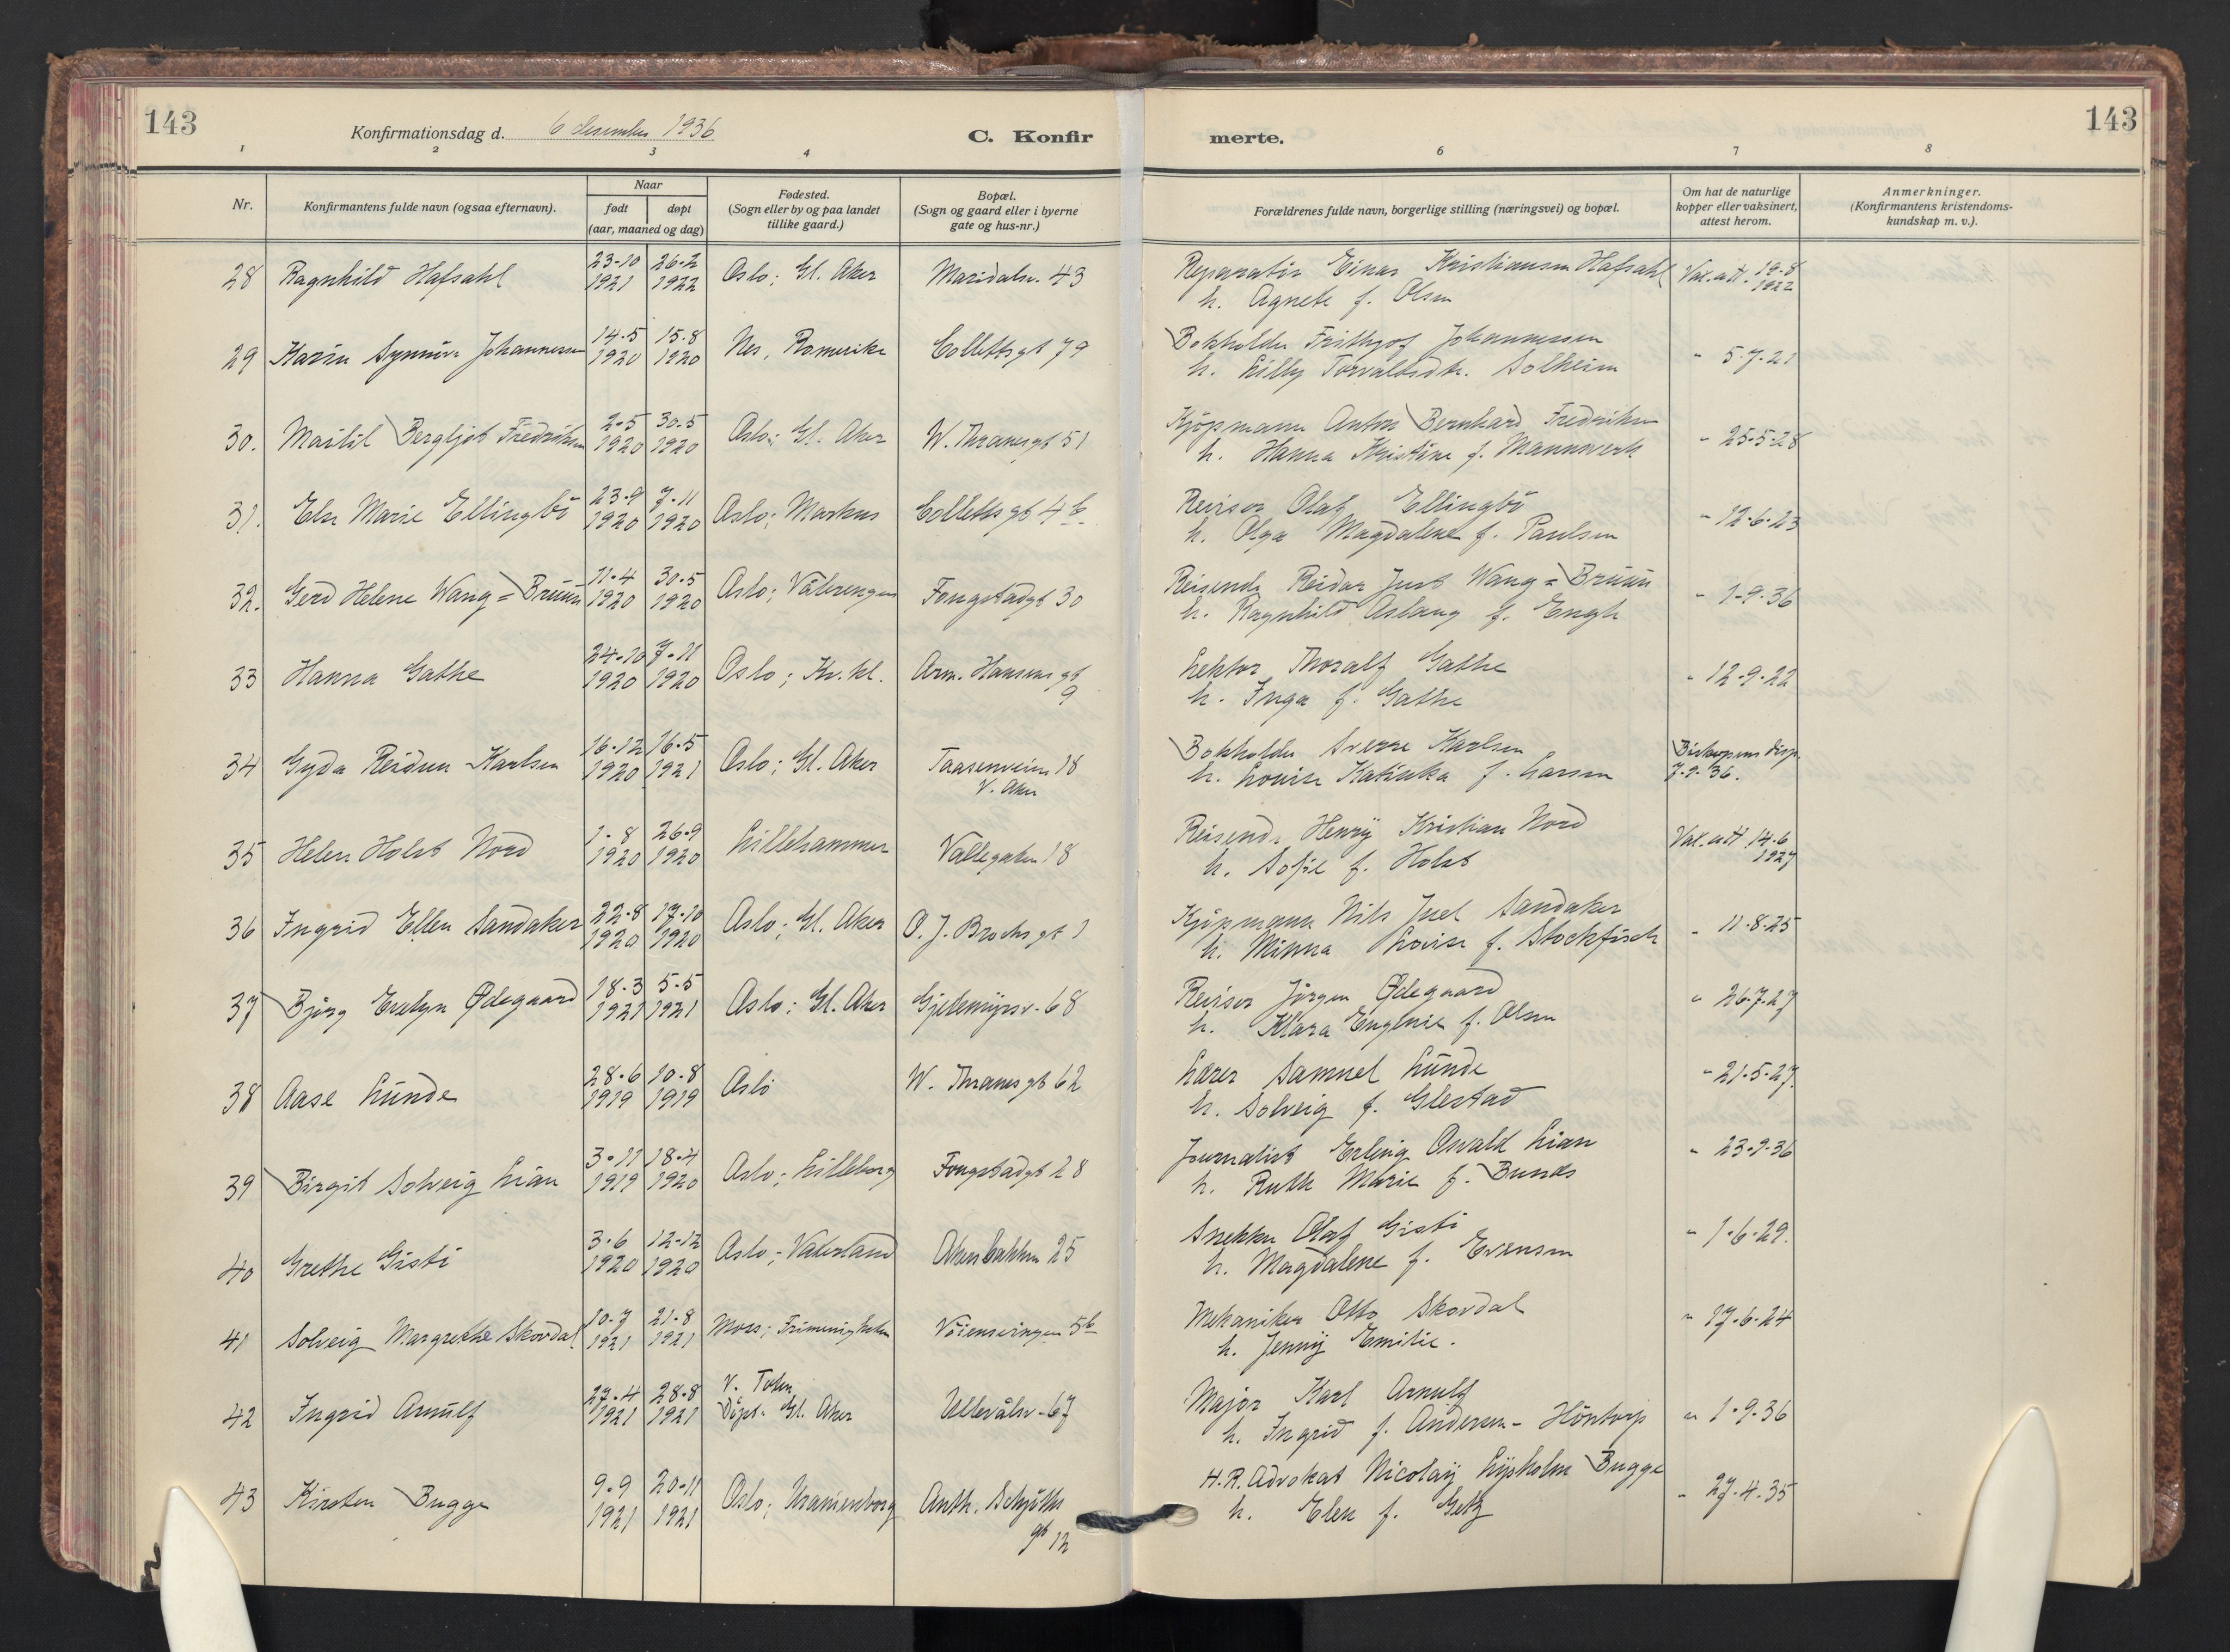 143
Konfirmationsdag d. 6 desember 1936
C. Konfir
merte.
143
1 2 3 4 6 7 8
Nr.
Konfirmantens fulde navn (ogsaa efternavn).
Naar
født døpt
(aar, maaned og dag)
Fødested.
(Sogn eller by og paa landet
tillike gaard.)
Bopæl.
(Sogn og gaard eller i byerne
gate og hus-nr.)
Forældrenes fulde navn, borgerlige stilling (næringsvei) og bopæl.
Om hat de naturlige
kopper eller vaksinert,
attest herom.
Anmerkninger.
(Konfirmantens kristendoms-
kundskap m. v.).
28 Ragnhild Hafsahl 23-10 1921 26-2 1922 Oslo; Gl. Aker Maridalsv. 43
Reparatør Einar Kristiansen Hafsahl Vak. att. 19-8 1922
h. Agnete f. Olsen
29 Karin Synnøve Johannesen 14-5 1920 15-8 1920 Nes, Romerike Collettsgt 79
Bokholder Frithjof Johannessen " 5-7-21
h. Lilly Torvaldsdtr. Solheim
30. Mailil Bergljot Fredriksen 2-5 1920 30-5 1920 Oslo; Gl. Aker W. Thranesgt 51
Kjøpmann Anton Bernhard Fredriksen " 25-5-28
h. Hanna Kristine f. Mannverk
31. Else Marie Ellingbö 23-9 1920 7-11 1920 Oslo; Markus Collettsgt 4b
Revisor Olaf Ellingbö " 12-6-23
h. Olga Magdalene f. Paulsen
32. Gerd Helene Wang=Bruun 11-4 1920 30-5 1920 Oslo; Vålerengen Fougstadgt 30
Reisende Reidar Just Wang=Bruun " 1-9-36
h. Ragnhild Aslaug f. Engh
33 Hanna Gathe 24-10 1920 7-11 1920 Oslo; Kv. kl. Arm. Hansens gt 9
Lektor Thoralf Gathe " 12-9-22
h. Inga f. Gathe
34 Gyda Reidun Karlsen 16-12 1920 16-5 1921 Oslo; Gl. Aker Taasenveien 18
V. Aker
Bokholder Sverre Karlsen Biskopens disp.
h. Louise Katinka f. Larsen 7-9-36.
35 Helen Holst Nord 1-8 1920 26-9 1920 Lillehammer Vallegaten 18
Reisende Henry Kristian Nord Vak. att. 14-6 1927
h. Sofie f. Holst
36 Ingrid Ellen Sandaker 22-8 1920 17-10 1920 Oslo; Gl. Aker O. J. Brochs gt 1
Kjøpmann Nils Juel Sandaker " 11-8-25
h. Minna Lovise f. Stockfisch
37 Bjørg Evelyn Ødegaard 18-3 1921 5-5 1921 Oslo; Gl. Aker Gjetemyrsv. 68
Revisor Jørgen Ødegaard " 26-7-27
h. Klara Euginie f. Olsen
38 Aase Lunde 28-6 1919 10-8 1919 Oslo W. Thranes gt 62
Lærer Samuel Lunde " 21-5-27.
h. Solveig f. Glestad
39 Birgit Solveig Lian 3-11 1919 18-4 1920 Oslo; Lilleborg Fougstadgt 28
Journalist Erling Osvald Lian " 23-9-36
h. Ruth Marie f. Bunds
40 Grethe Gisti 3-6 1920 12-12 1920 Oslo; Vaterland Akersbakken 25
Snekker Olaf Gisti " 1-6-29.
h. Magdalene f. Evensen
41 Solveig Margrethe Skovdal 10-7 1921 21-8 1921 Moss; Frimenigheten Vöiensvingen 5b
Mekaniker Otto Skovdal " 17-6-24
h. Jenny Emilie.
42 Ingrid Arnulf 27-4 1921 28-8 1921 V. Toten
Döpt: Gl. Aker Ullevålsv. 67
Major Karl Arnulf " 1-9-36
h. Ingrid f. Andersen-Höntorp
43 Kirsten Bugge 9-9 1921 20-11 1921 Oslo; Uranienborg Anth. Schjöths
gt 12
H.R. Advokat Nicolay Lysholm Bugge " 27-4-35
h. Elen f. Getz